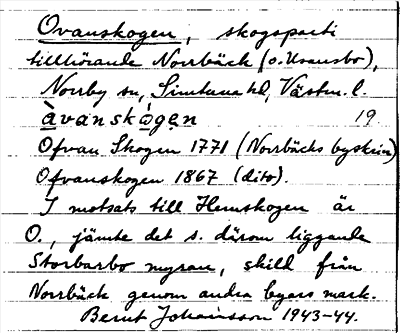 Ovanskogen, skogsparti
tillhörande Norrbäck (o. Usansbo),
Norrby sn, Simtuna hd, Västm. l.
àvanskógen 19.
Ofvan Skogen 1771 (Norrbäcks byskrin)
Ofvanskogen 1867 (dito).
I motsats till Hemskogen är
O., jämte det s. därom liggande
Storbarbo myran, skild från
Norrbäck genom andra byars mark.
Bernt Johansson 1943-44.